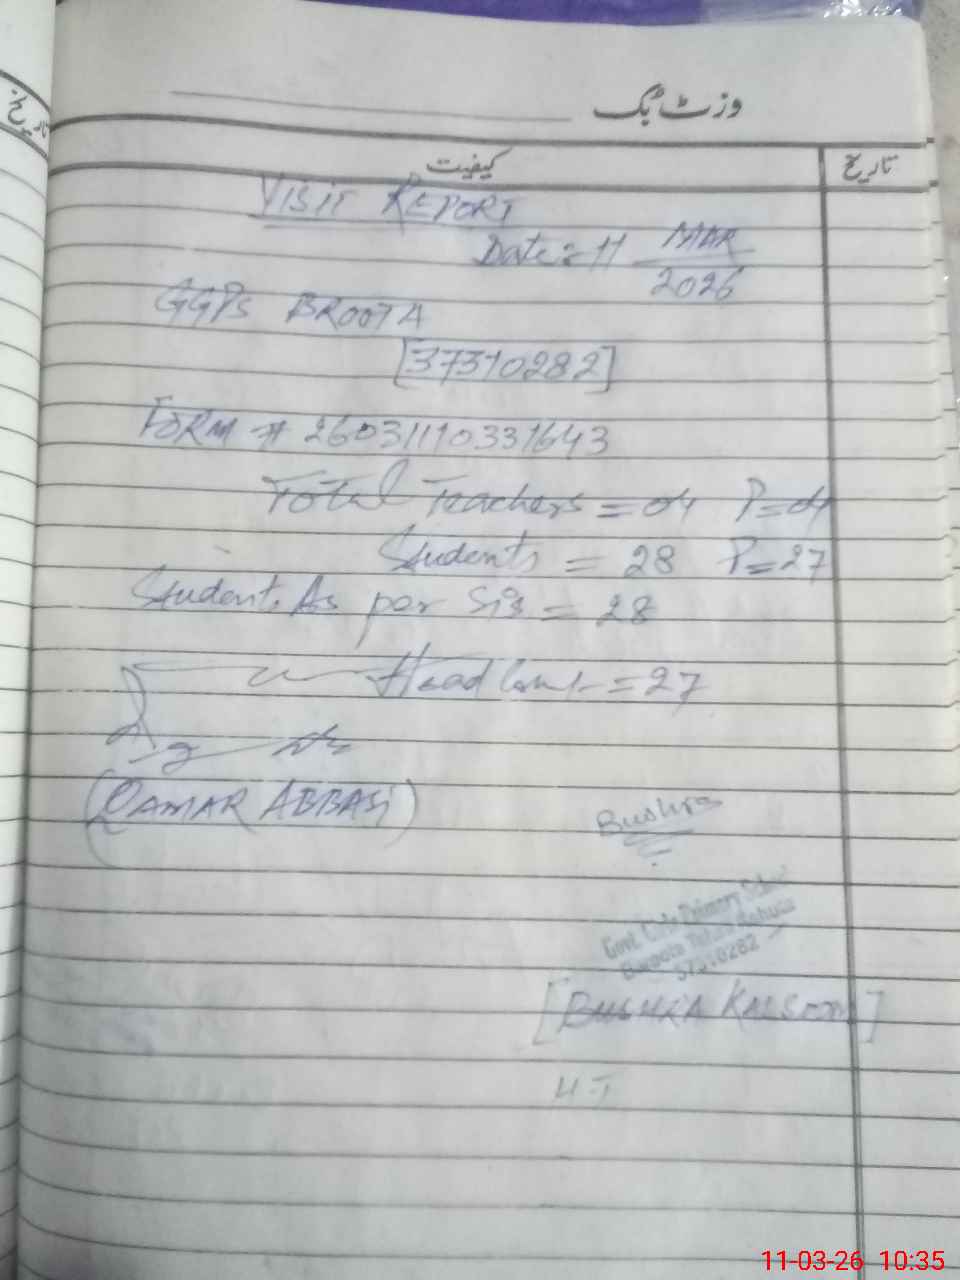 وزٹ بک
تاریخ
کیفیت
تاریخ
VISIT REPORT
Date: 11 MAR
2026
GGPS BROOTA
[37310282]
FORM # 26031110331643
Total Teachers = 04 P=04
Students = 28 P=27
Student As per Sis = 28
Head Count = 27
(QAMAR ABBASI)
Bushra
Govt. Girls Primary School
Baroota Tehsil Kahuta
37310282
[BUSHRA KALSOOM]
H.T
11-03-26 10:35